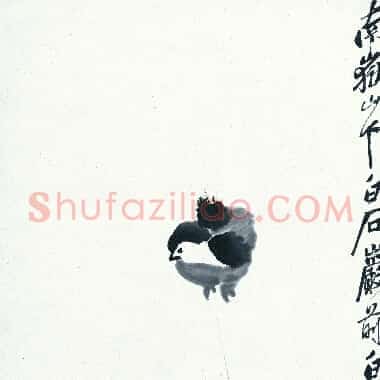 南嶽山下白石巖前白
Shufaziliao.COM